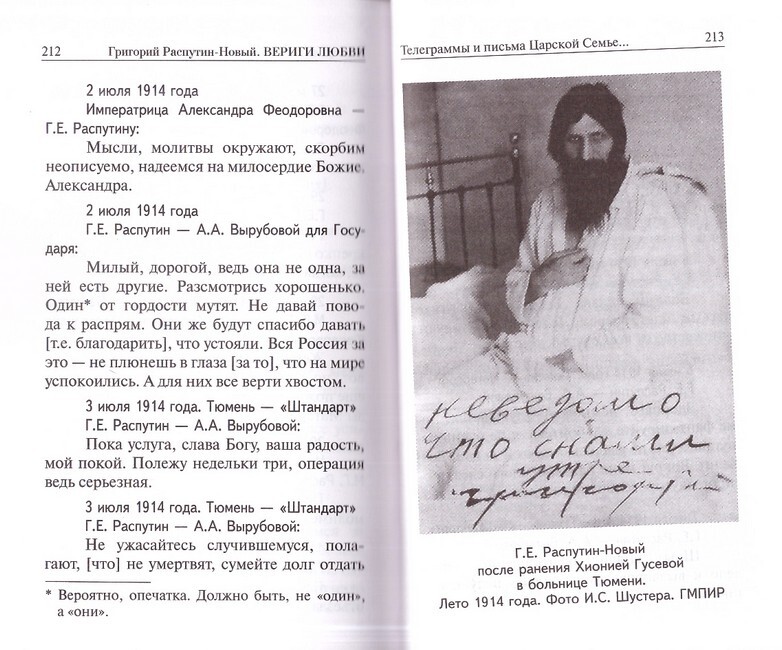 212 Григорий Распутин-Новый. ВЕРИГИ ЛЮБВИ
2 июля 1914 года
Императрица Александра Феодоровна —
Г.Е. Распутину:
Мысли, молитвы окружают, скорбим
неописуемо, надеемся на милосердие Божие.
Александра.
2 июля 1914 года
Г.Е. Распутин — А.А. Вырубовой для Госу-
даря:
Милый, дорогой, ведь она не одна, за
ней есть другие. Разсмотрись хорошенько.
Один* от гордости мутят. Не давай пово-
да к распрям. Они же будут спасибо давать
[т.е. благодарить], что устояли. Вся Россия за
это — не плюнешь в глаза [за то], что на мире
успокоились. А для них все верти хвостом.
3 июля 1914 года. Тюмень — «Штандарт»
Г.Е. Распутин — А.А. Вырубовой:
Пока услуга, слава Богу, ваша радость,
мой покой. Полежу недельки три, операция
ведь серьезная.
3 июля 1914 года. Тюмень — «Штандарт»
Г.Е. Распутин — А.А. Вырубовой:
Не ужасайтесь случившемуся, пола-
гают, [что] не умертвят, сумейте долг отдать
* Вероятно, опечатка. Должно быть, не «один»,
а «они».
Телеграммы и письма Царской Семье... 213
неведомо
что снами
утре
григорий
Г.Е. Распутин-Новый
после ранения Хионией Гусевой
в больнице Тюмени.
Лето 1914 года. Фото И.С. Шустера. ГМПИР